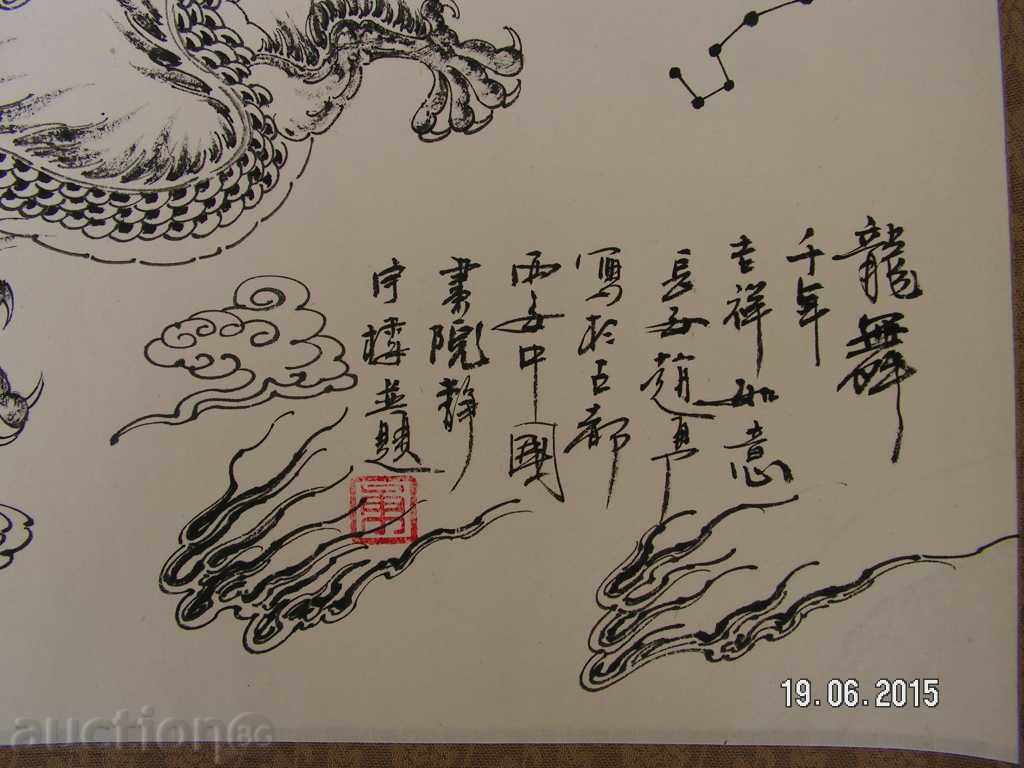 龍舞
千年
吉祥如意
長安趙
寫於古都
西安中國
書院静
宇樓並題
19.06.2015
auction BG